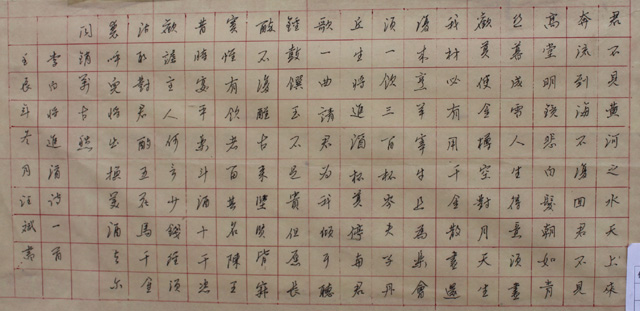 君不見黄河之水天上來
奔流到海不復回君不見
高堂明鏡悲白髮朝如青
丝暮成雪人生得意須盡
歡莫使金樽空對月天生
我材必有用千金散盡還
復来烹羊宰牛且為樂會
須一飲三百杯岑夫子丹
丘生将進酒杯莫停與君
歌一曲請君為我傾耳聽
鐘鼓饌玉不足貴但愿長
醉不復醒古来聖賢皆寂
寞惟有飲者留其名陳王
昔時宴平樂斗酒十千恣
歡謔主人何言少錢徑須
沽取對君酌五花馬千金
裘呼兒将出換美酒與尔
同銷萬古愁
李白将進酒詩一首
壬辰年冬月汪斌書